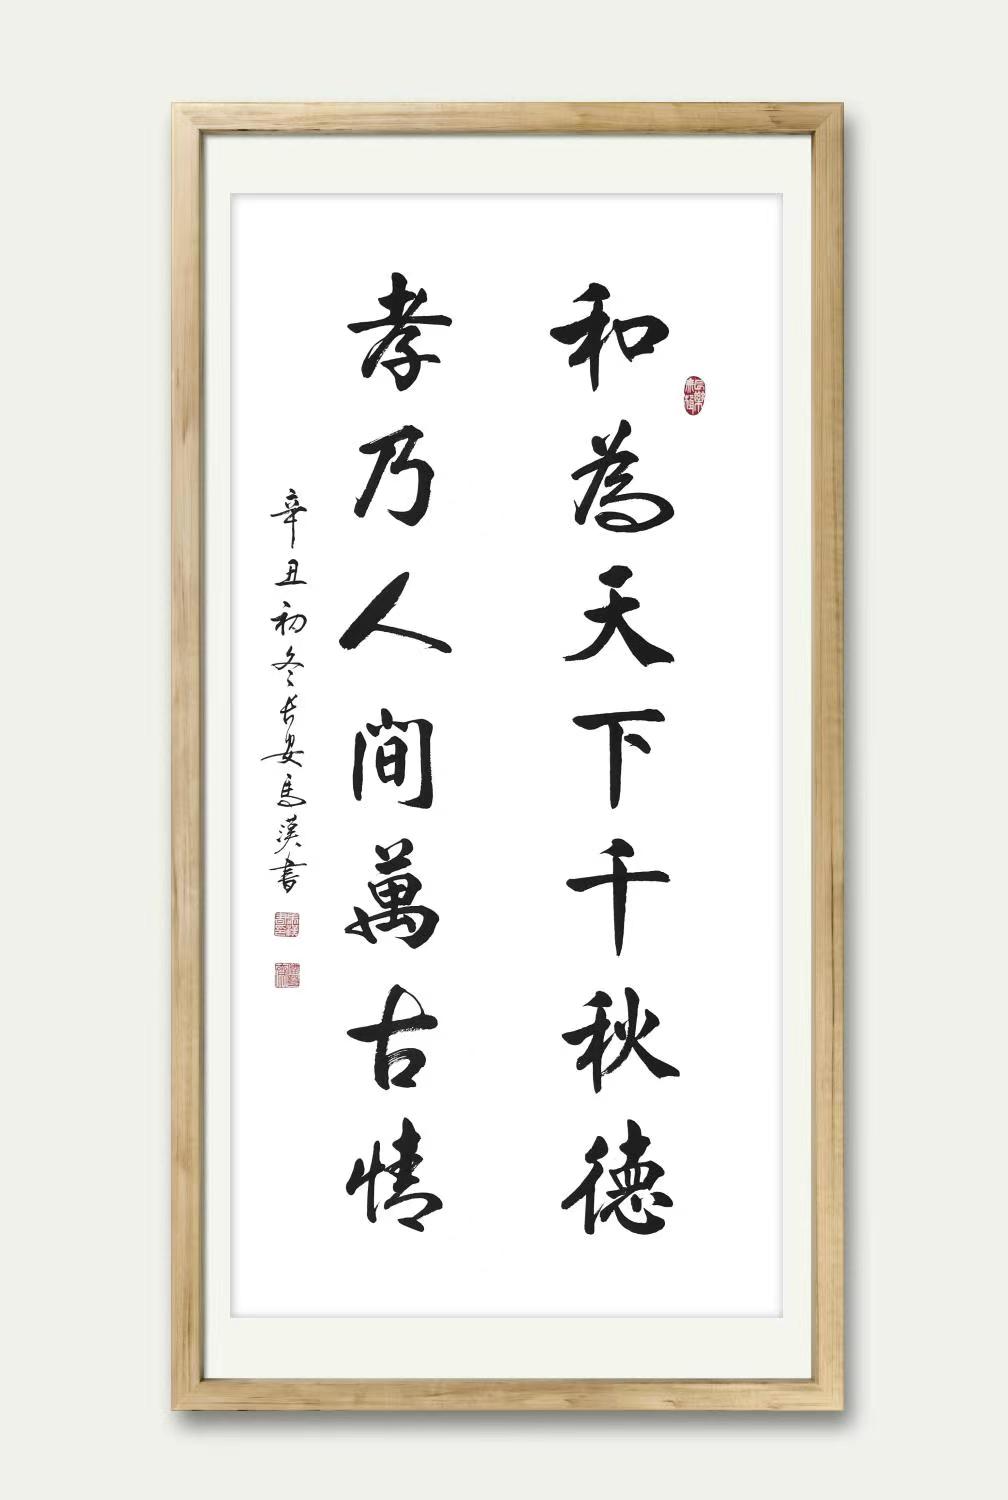 和為天下千秋德
孝乃人間萬古情
辛丑初冬長安馬漢書